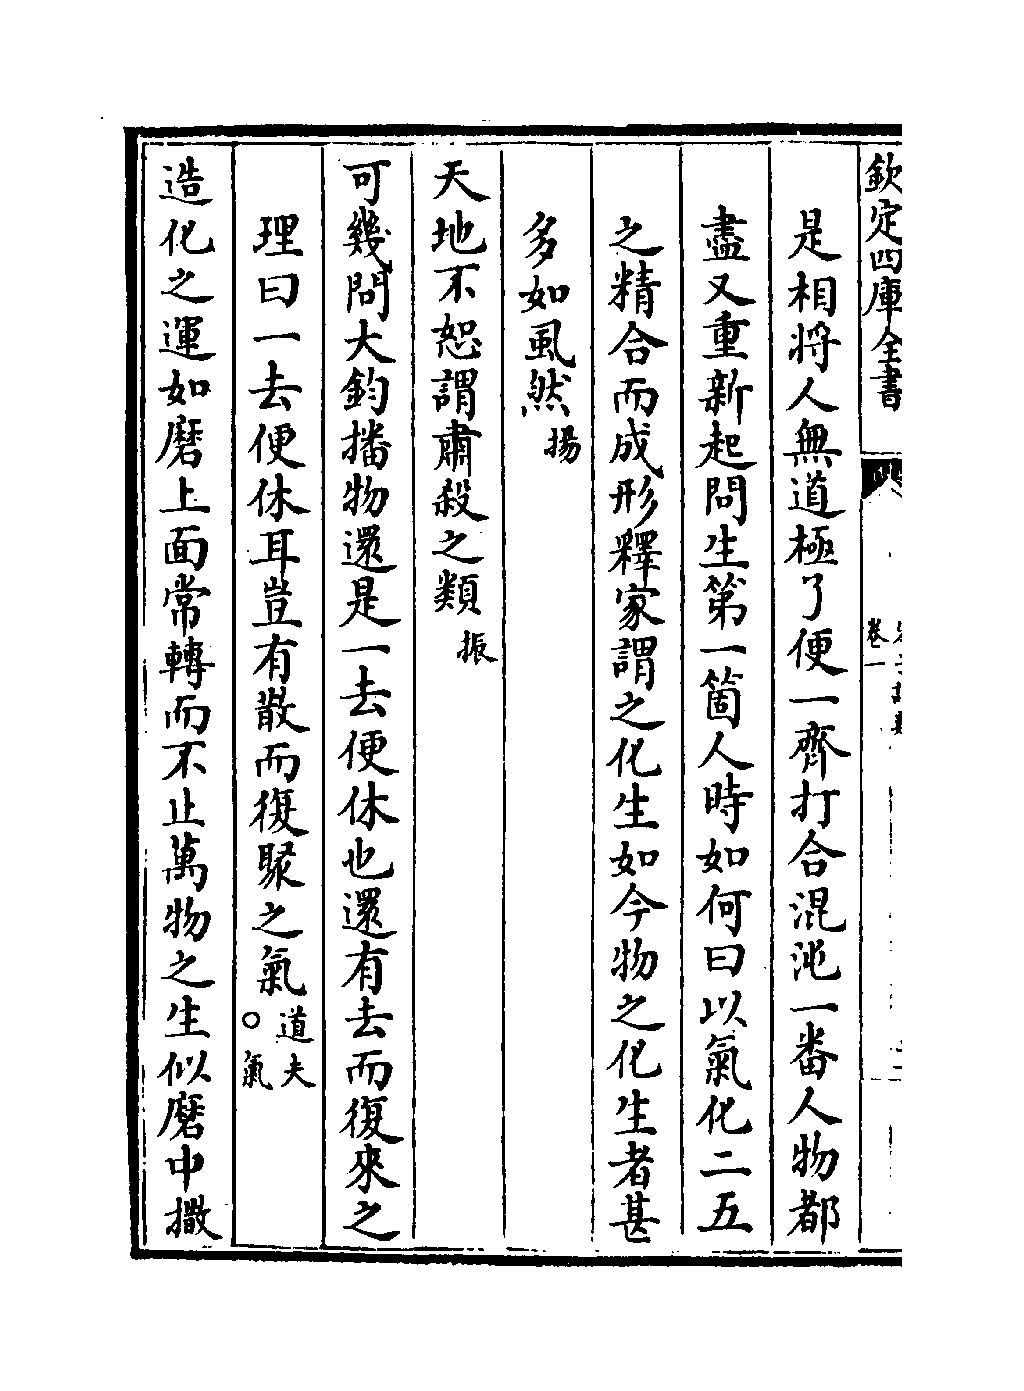 欽定四庫全書
卷一
是相將人無道極了便一齊打合混沌一番人物都
盡又重新起問生第一箇人時如何曰以氣化二五
之精合而成形釋家謂之化生如今物之化生者甚
多如虱然揚
天地不恕謂肅殺之類振
可幾問大鈞播物還是一去便休也還有去而復來之
理曰一去便休耳豈有散而復聚之氣道夫○氣
造化之運如磨上面常轉而不止萬物之生似磨中撒